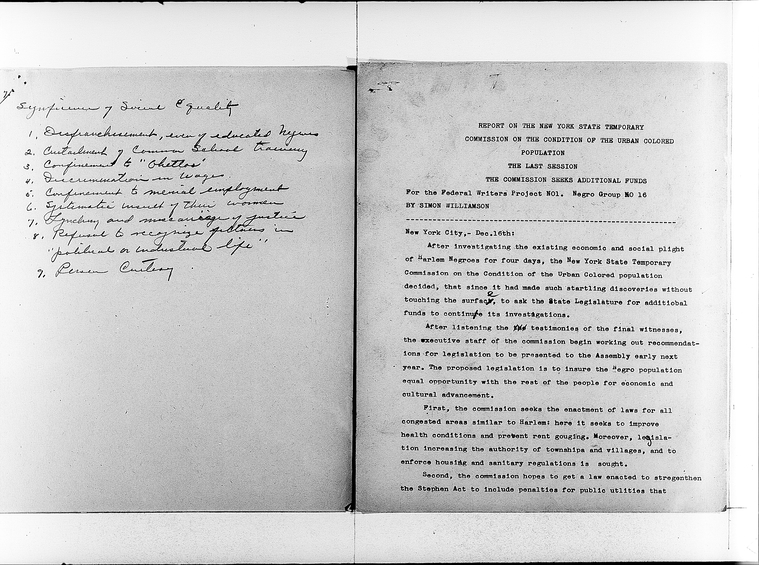 of Social Equality
1. Disfranchisement, even of educated Negroes
2. Curtailment of Common School training
3. Confinement to "Ghettos"
4. Discrimination in wage
5. Confinement to menial employment
6. Systematic insult of their women
7. Lynching and miscarriage of justice
8. Refusal to recognize in
"political or industrial life"
9.
REPORT ON THE NEW YORK STATE TEMPORARY
COMMISSION ON THE CONDITION OF THE URBAN COLORED
POPULATION
THE LAST SESSION
THE COMMISSION SEEKS ADDITIONAL FUNDS
For the Federal Writers Project NO1. Negro Group NO 16
BY SIMON WILLIAMSON
New York City,- Dec.16th:
After investigating the existing economic and social plight
of Harlem Negroes for four days, the New York State Temporary
Commission on the Condition of the Urban Colored population
decided, that since it had made such startling discoveries without
touching the surface, to ask the State Legislature for additiobal
funds to continue its investigations.
After listening the testimonies of the final witnesses,
the executive staff of the commission begin working out recommendat-
ions for legislation to be presented to the Assembly early next
year. The proposed legislation is to insure the Negro population
equal opportunity with the rest of the people for economic and
cultural advancement.
First, the commission seeks the enactment of laws for all
congested areas similar to Harlem: here it seeks to improve
health conditions and prevent rent gouging. Moreover, legisla-
tion increasing the authority of townships and villages, and to
enforce housing and sanitary regulations is sought.
Second, the commission hopes to get a law enacted to stregenthen
the Stephen Act to include penalties for public utlities that